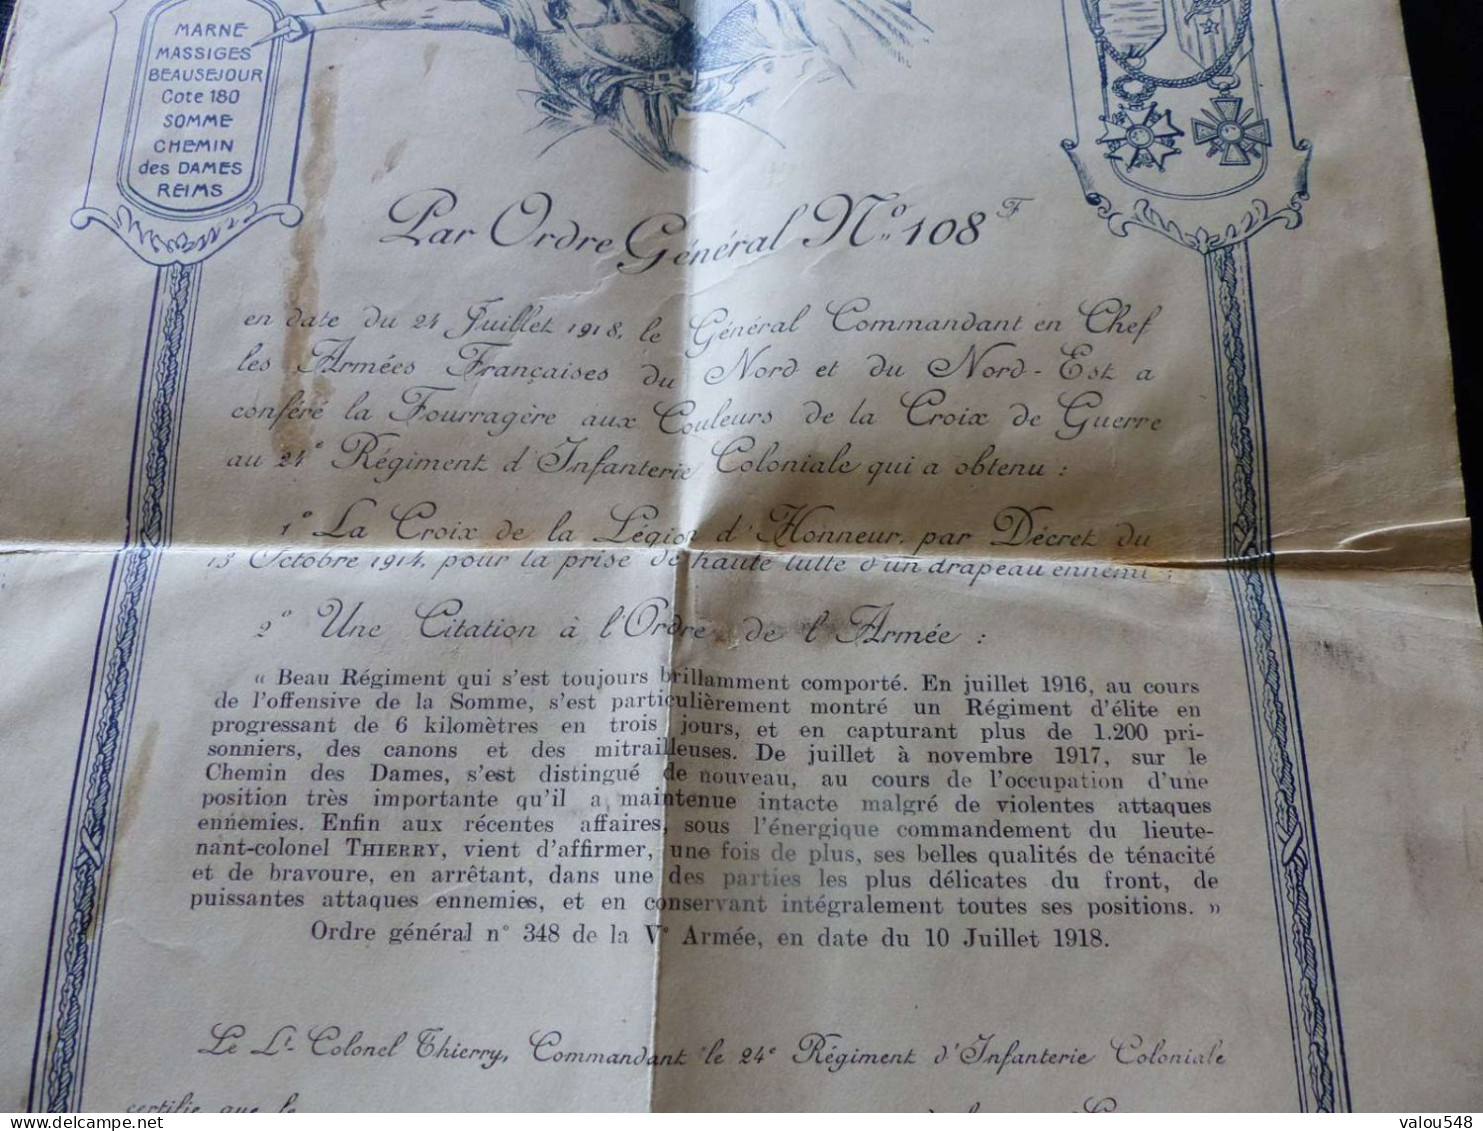 MARNE
MASSIGES
BEAUSEJOUR
Cote 180
SOMME
CHEMIN
des DAMES
REIMS
Par Ordre Général No. 108 F
en date du 24 Juillet 1918, le Général Commandant en Chef
les Armées Françaises du Nord et du Nord-Est a
conféré la Fourragère aux Couleurs de la Croix de Guerre
au 24e Régiment d'Infanterie Coloniale qui a obtenu :
1o La Croix de la Légion d'Honneur, par Décret du
13 Octobre 1914, pour la prise de haute lutte d'un drapeau ennemi ;
2o Une Citation à l'Ordre de l'Armée :
« Beau Régiment qui s'est toujours brillamment comporté. En juillet 1916, au cours
de l'offensive de la Somme, s'est particulièrement montré un Régiment d'élite en
progressant de 6 kilomètres en trois jours, et en capturant plus de 1.200 pri-
sonniers, des canons et des mitrailleuses. De juillet à novembre 1917, sur le
Chemin des Dames, s'est distingué de nouveau, au cours de l'occupation d'une
position très importante qu'il a maintenue intacte malgré de violentes attaques
ennemies. Enfin aux récentes affaires, sous l'énergique commandement du lieute-
nant-colonel THIERRY, vient d'affirmer, une fois de plus, ses belles qualités de ténacité
et de bravoure, en arrêtant, dans une des parties les plus délicates du front, de
puissantes attaques ennemies, et en conservant intégralement toutes ses positions. »
Ordre général n° 348 de la Ve Armée, en date du 10 Juillet 1918.
Le Lt-Colonel Thierry, Commandant le 24e Régiment d'Infanterie Coloniale
certifie que le
valou548